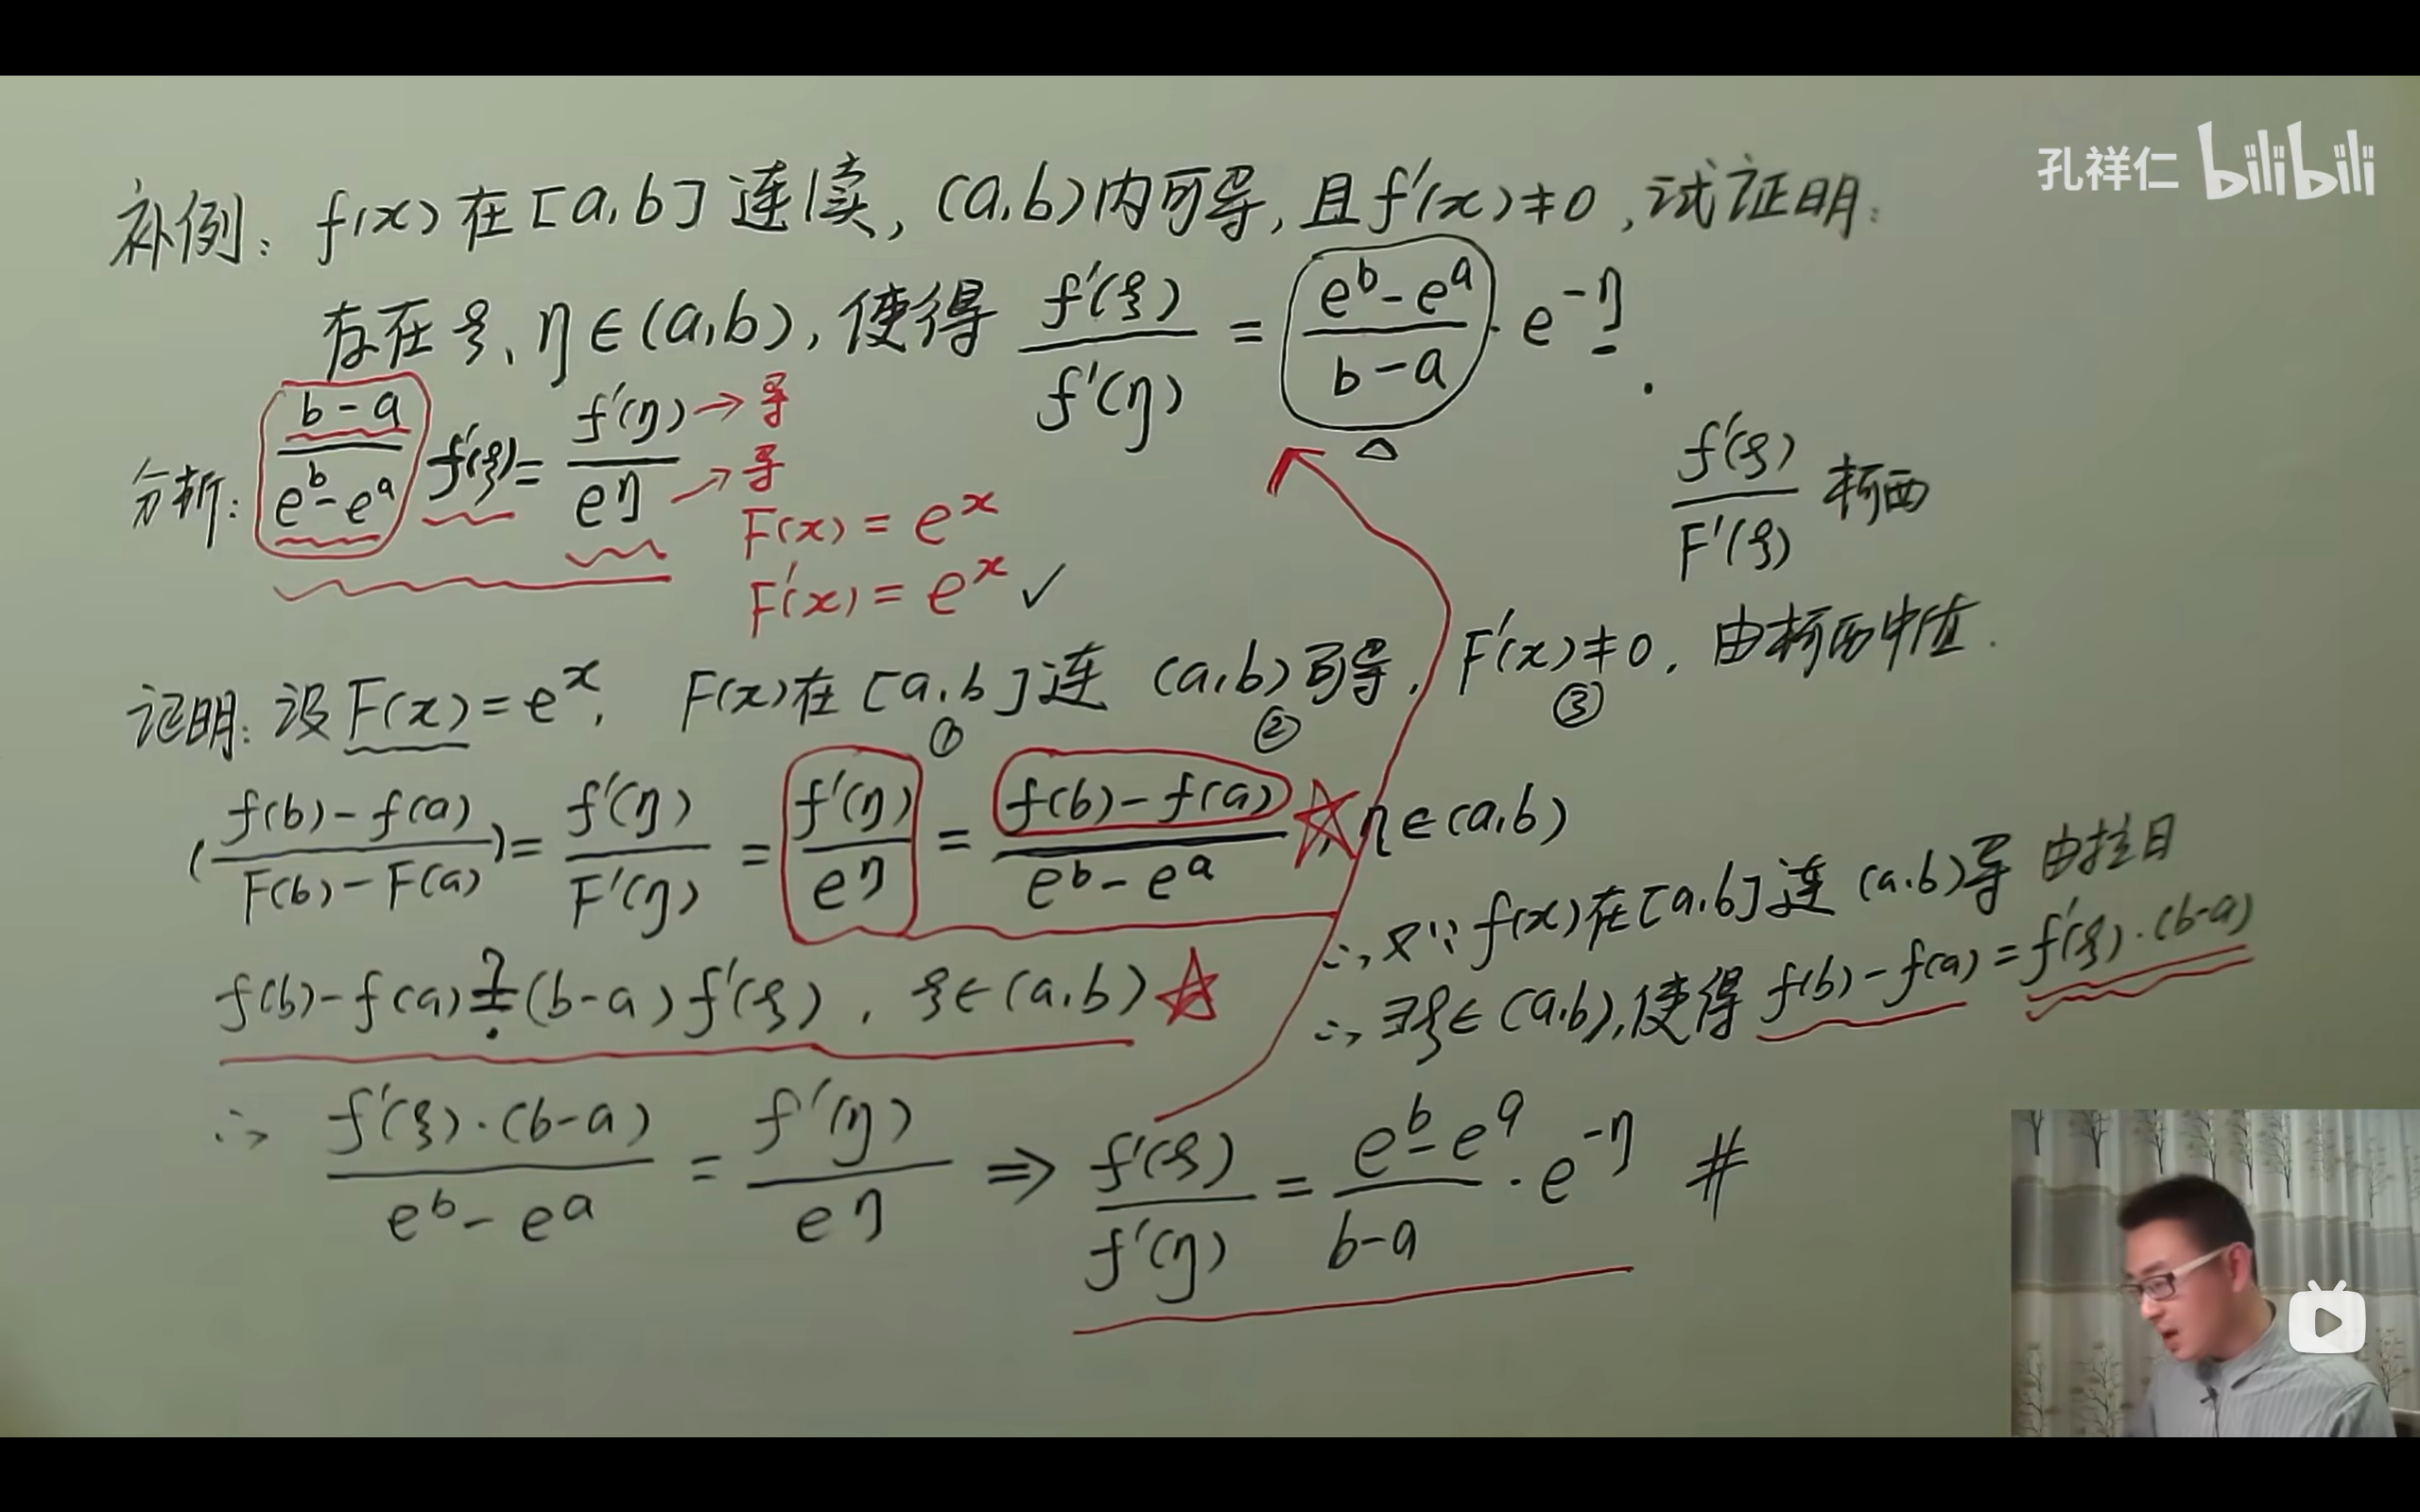 孔祥仁 bilibili
补例: f(x) 在 [a,b] 连续, (a,b) 内可导, 且 f'(x)≠0, 试证明:
存在 ξ、η∈(a,b), 使得 f'(ξ)/f'(η) = (e^b-e^a)/(b-a) · e^{-η}.
△
分析: (b-a)/(e^b-e^a) f'(ξ) = f'(η)/e^η → 导 → 导
F(x) = e^x
F'(x) = e^x ✓
f'(ξ)/F'(ξ) 柯西
证明: 设 F(x) = e^x, F(x) 在 [a,b] 连 (a,b) 可导, F'(x)≠0, 由柯西中值.
① ② ③
(f(b)-f(a))/(F(b)-F(a)) = f'(η)/F'(η) = f'(η)/e^η = (f(b)-f(a))/(e^b-e^a) ☆, η∈(a,b)
f(b)-f(a) ?= (b-a) f'(ξ), ξ∈(a,b) ☆
∴ 又∵ f(x) 在 [a,b] 连 (a,b) 导 由拉日
∴ ∃ξ∈(a,b), 使得 f(b)-f(a) = f'(ξ)·(b-a)
∴ f'(ξ)·(b-a)/(e^b-e^a) = f'(η)/e^η ⇒ f'(ξ)/f'(η) = (e^b-e^a)/(b-a) · e^{-η} #